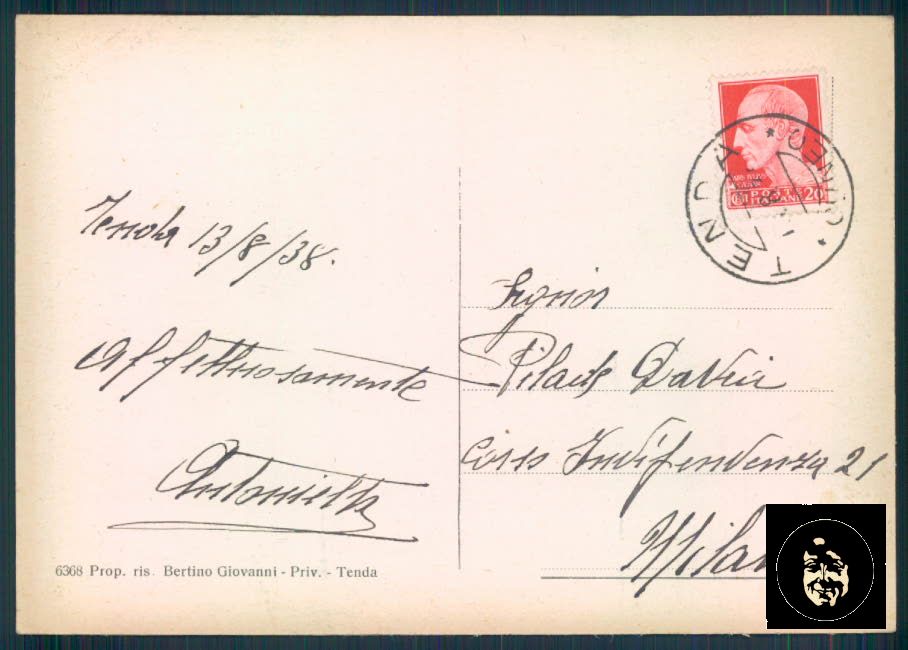 Tenda 13/8/38.
Affettuosamente
Antonietta
6368 Prop. ris. Bertino Giovanni - Priv. - Tenda
TENDA * CUNEO *
POSTE
ITALIANE
20
Signor
Corso Indipendenza 21